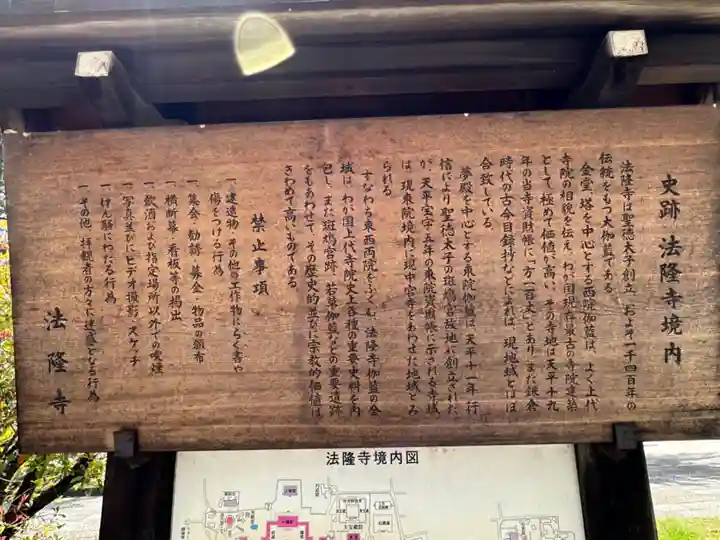 史跡 法隆寺境内
法隆寺は聖徳太子創立、およそ一千四百年の
伝統をもつ大伽藍である。
金堂、塔を中心とする西院伽藍は、よく上代
寺院の相貌を伝え、わが国現存最古の寺院建築
として極めて価値が高い。その寺地は天平十九
年の当寺資財帳に「方一百丈」とあり、また鎌倉
時代の古今目録抄などによれば、現地域とほぼ
合致している。
夢殿を中心とする東院伽藍は、天平十一年行
信により聖徳太子の斑鳩宮故地に創立された
が、天平宝字五年の東院資財帳に示される寺域
は、現東院境内に現中宮寺をあわせた地域とみ
られる。
すなわち東西両院をふくむ、法隆寺伽藍の全
域は、わが国上代寺院史上各種の重要史料を内
包し、また斑鳩宮跡、若草伽藍などの重要遺跡
をもあわせて、その歴史的並びに宗教的価値は
きわめて高いものである。
禁止事項
一、建造物、その他の工作物にらく書や
傷をつける行為
一、集会・勧誘・募金・物品の頒布
一、横断幕、看板等の掲出
一、飲酒および指定場所以外での喫煙
一、写真並びにビデオ撮影・スケッチ
一、けん騒にわたる行為
一、その他、拝観者の方々に迷惑となる行為
法隆寺
法隆寺境内図